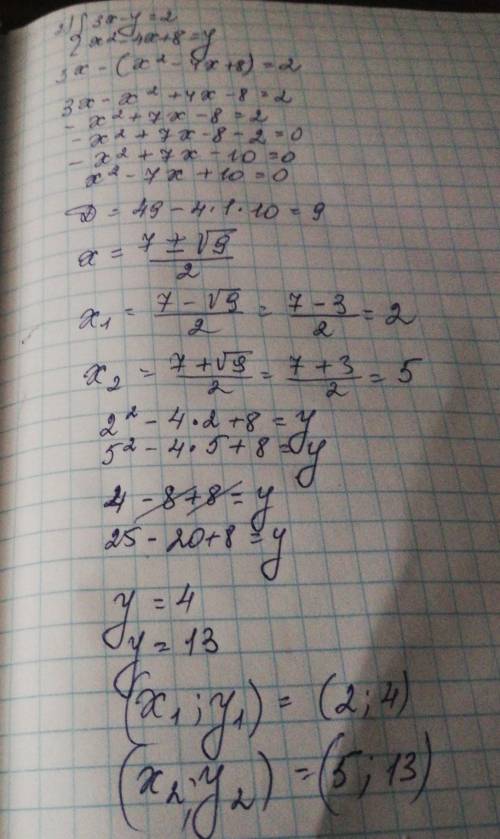 2) { 3x-y=2
x²-4x+8=y
3x-(x²-4x+8)=2
3x-x²+4x-8=2
-x²+7x-8=2
-x²+7x-8-2=0
-x²+7x-10=0
x²-7x+10=0
D=49-4·1·10=9
x=(7±√9)/2
x₁=(7-√9)/2=(7-3)/2=2
x₂=(7+√9)/2=(7+3)/2=5
2²-4·2+8=y
5²-4·5+8=y
4-8+8=y
25-20+8=y
y=4
y=13
(x₁;y₁)=(2;4)
(x₂;y₂)=(5;13)